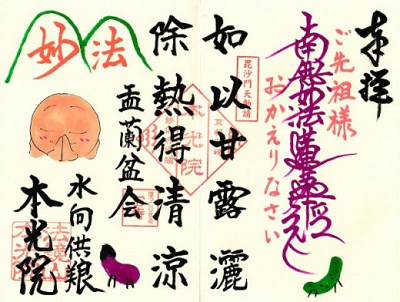 奉拝
ご先祖様
おかえりなさい
南無妙法蓮華経
毘沙門天勧請
如以甘露灑
除熱得清涼
妙法
盂蘭盆会
水向供養
本光院